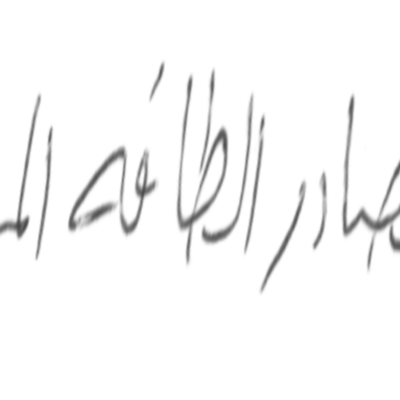 صادر الطاقه الم